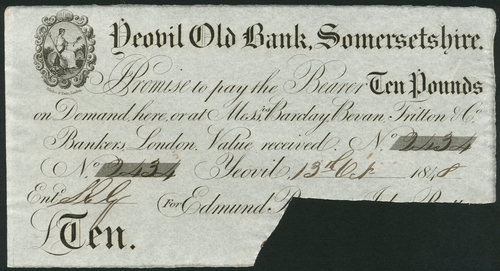 Yeovil Old Bank, Somersetshire.
I Promise to pay the Bearer Ten Pounds
on Demand, here, or at Mess.rs Barclay, Bevan, Tritton & Co.
Bankers, London, Value received. No. 2434
No. 2434 Yeovil, 13th Oct 1848
Entd. For Edmund
£Ten.